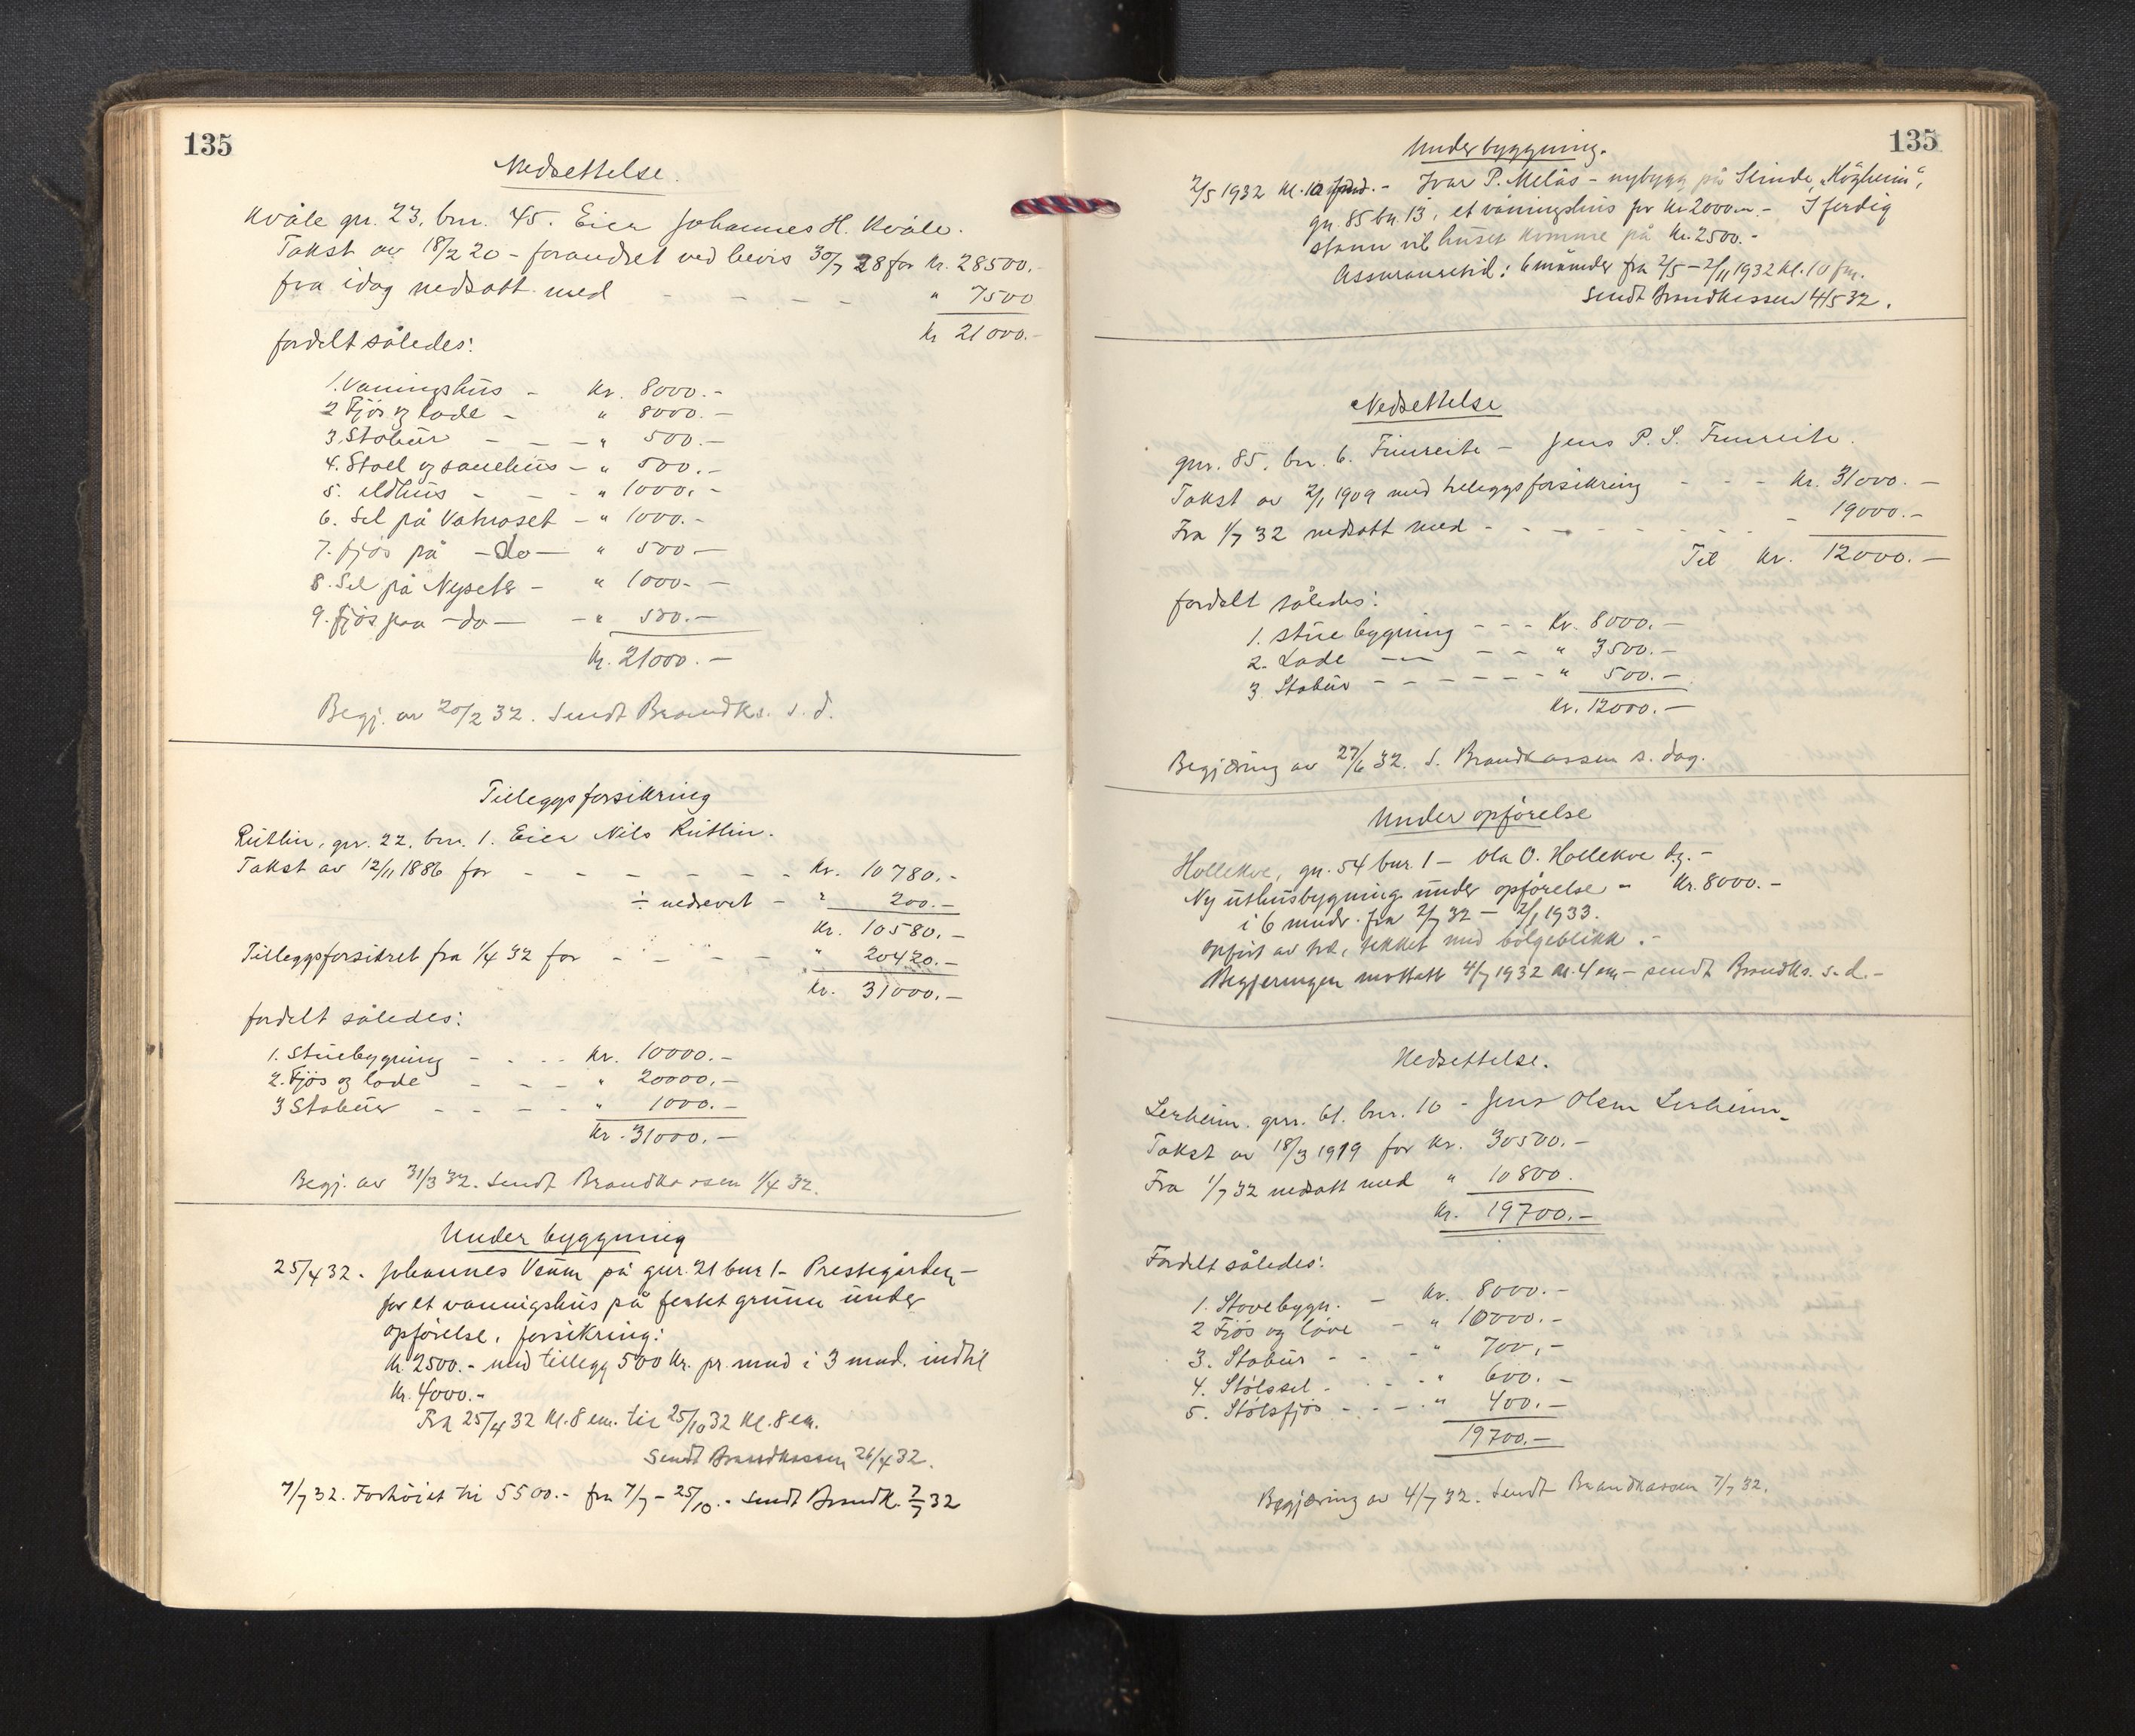 135
Nedsettelse.
Kvåle gnr. 23, bnr. 45. Eier Johannes H. Kvåle.
Takst av 18/2 20 - forandret ved bevis 30/7 28 for Kr. 28500.-
fra idag nedsatt med - - - - " 7500
Kr 21000.-
fordelt således:
1. Vaningshus - Kr. 8000.-
2 Fjös og lade - " 8000.-
3. Stabur - - - " 500.-
4. Stall og sauehus - " 500.-
5. Eldhus - - - " 1000.-
6. Sel på Vatnaset - " 1000.-
7. fjös på - do - " 500.-
8. Sel på Nyseter - " 1000.-
9. fjös paa - do - - " 500.-
Kr. 21000.-
Begj. av 20/2 32. Sendt Brandks. s. d.
Tilleggsforsikring
Rutlin, gnr. 22, bnr. 1. Eier Nils Rutlin.
Takst av 12/11 1886 for - - - - - - Kr. 10780.-
÷ nedrevet - " 200.-
Kr. 10580.-
Tilleggsforsikret fra 1/4 32 for - - - - " 20420.-
Kr. 31000.-
fordelt således:
1. Stuebygning - - - - Kr. 10000.-
2. Fjös og lade - - - " 20000.-
3 Stabur - - - - " 1000.-
Kr. 31000.-
Begj. av 31/3 32. Sendt Brandkassen 1/4 32.
Under byggning
25/4 32. Johannes Venum på gnr. 21 bnr 1 - Prestegården -
for et vanningshus på festet grunn under
opförelse, forsikring:
Kr. 2500.- med tillegg 500 Kr. pr. mnd i 3 mnd. indtil
Kr. 4000.-
Fra 25/4 32 Kl. 8 em. til 25/10 32 Kl. 8 em.
Sendt Brandkassen 26/4 32.
7/7 32. Forhöiet til 5500.- fra 7/7 - 25/10.- sendt Brandk. 7/7 32
135
Under byggning.
2/5 1932 Kl. 10 - Ivar P. Melås - nybygg på Slinde, "Köyheim",
gn. 85 bn 13, et våningshus for Kr 2000.- I ferdig
stann vil huset komme på Kr. 2500.-
Assuransetid: 6 månder fra 2/5 - 2/11 1932 Kl. 10 fm.
Sendt Brandkassen 4/5 32.
Nedsettelse
gnr. 85, bnr. 6. Fimreite - Jens P. S. Fimreite.
Takst av 2/1 1909 med tilleggsforsikring - - - Kr. 31000.-
Fra 1/7 32 nedsatt med - - - - - - - - 19000.-
Til Kr. 12000.-
fordelt således:
1. Stue bygning - - - Kr. 8000.-
2. Lade - - - - " 3500.-
3. Stabur - - - - - - " 500.-
Kr. 12000.-
Begjæring av 27/6 32. S. Brandkassen s. dag.
Under opförelse
Hollekve, gn. 54 bnr. 1 - Ola O. Hollekve d.y. -
Ny uthusbygning under opförelse - Kr. 8000.-
i 6 mndr. fra 2/7 32 - 2/1 1933.
Opfört av tre, tekket med bölgeblikk.-
Begjeringen mottatt 4/7 1932 kl. 4 em - sendt Brandks. s. d.-
Nedsettelse.
Lerheim. gnr. 61. bnr. 10 - Jens Olsen Lerheim.
Takst av 18/3 1919 for Kr. 30500.-
Fra 1/7 32 nedsatt med " 10800.
Kr. 19700.-
Fordelt således:
1. Stovebygn. - Kr. 8000.-
2 Fjös og löve - " 10000.-
3. Stabur - - - " 700.-
4. Stölssel - - - - " 600.-
5. Stölsfjös - - - - " 400.-
19700.-
Begjæring av 4/7 32. Sendt Brandkassen 7/7 32.